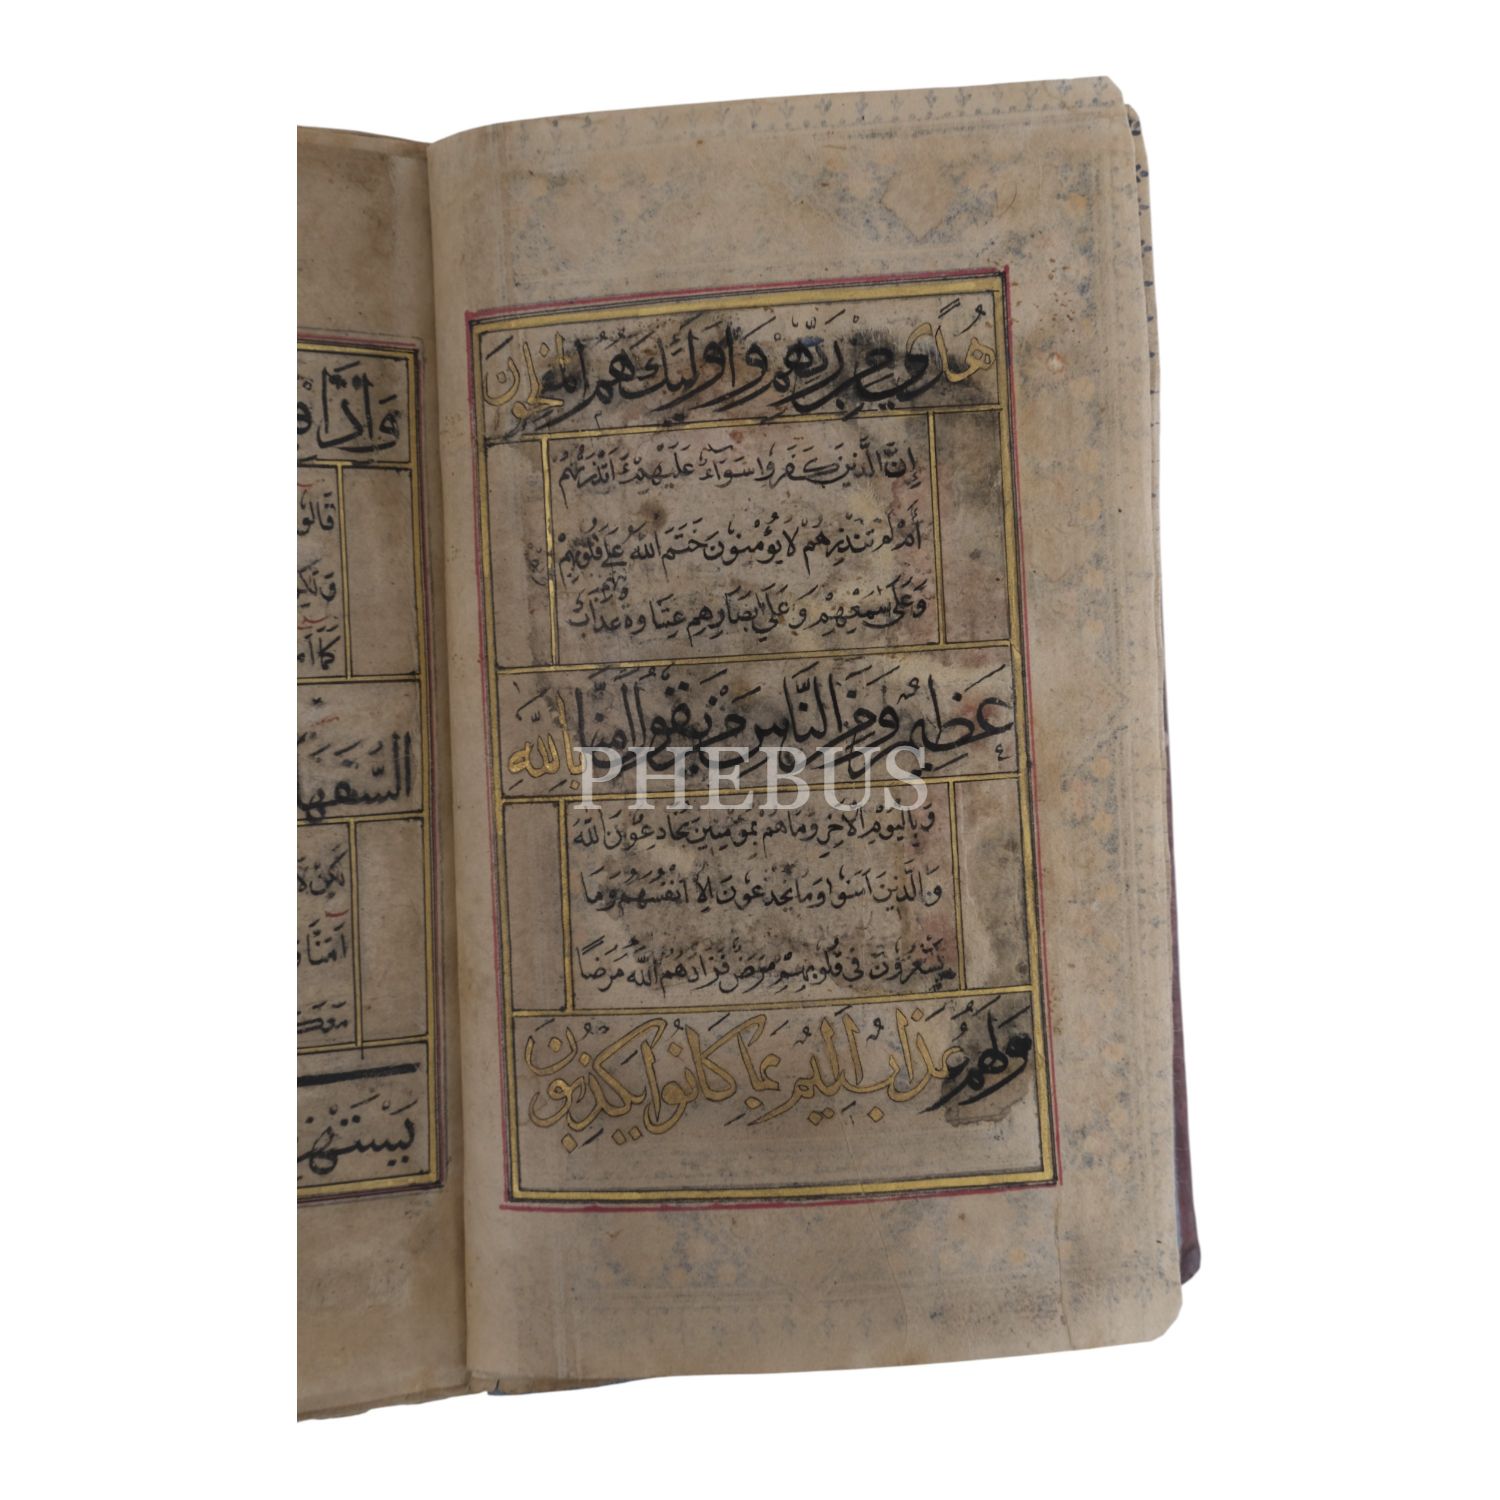 هُدًى مِن رَبِّهِمْ وَاُولَٰئِكَ هُمُ المفلحون
اِنَّ الَّذِينَ كَفَرُوا سَوَآءٌ عَلَيْهِمْ ءَاَنْذَرْتَهُمْ
أَمْ لَمْ تُنْذِرْهُمْ لَا يُؤْمِنُونَ خَتَمَ اللّٰهُ عَلٰى قُلُوبِهِمْ
وَعَلٰى سَمْعِهِمْ وَعَلٰى اَبْصَارِهِمْ غِشَاوَةٌ وَلَهُمْ عَذَابٌ
عَظِيمٌ وَمِنَ النَّاسِ مَنْ يَقُولُ اٰمَنَّا بِاللّٰهِ
٤
PHEBUS
وَبِالْيَوْمِ الْاٰخِرِ وَمَا هُمْ بِمُؤْمِنِينَ يُخَادِعُونَ اللّٰهَ
وَالَّذِينَ اٰمَنُوا وَمَا يَخْدَعُونَ اِلَّا اَنْفُسَهُمْ وَمَا
يَشْعُرُونَ فِى قُلُوبِهِمْ مَرَضٌ فَزَادَهُمُ اللّٰهُ مَرَضًا
وَلَهُمْ عَذَابٌ اَلِيمٌ بِمَا كَانُوا يَكْذِبُونَ
وَاِذَا
قَالُوا
السُّفَهَا
لَكِنْ لَا
اٰمَنَّا